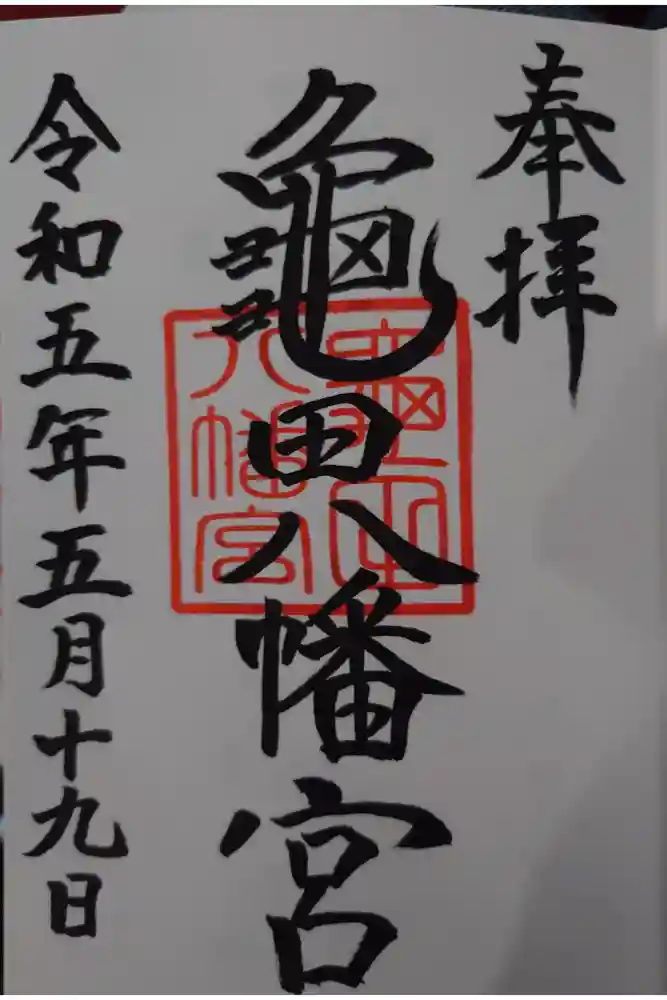 奉拝
龜田八幡宮
令和五年五月十九日
龜田
八幡宮